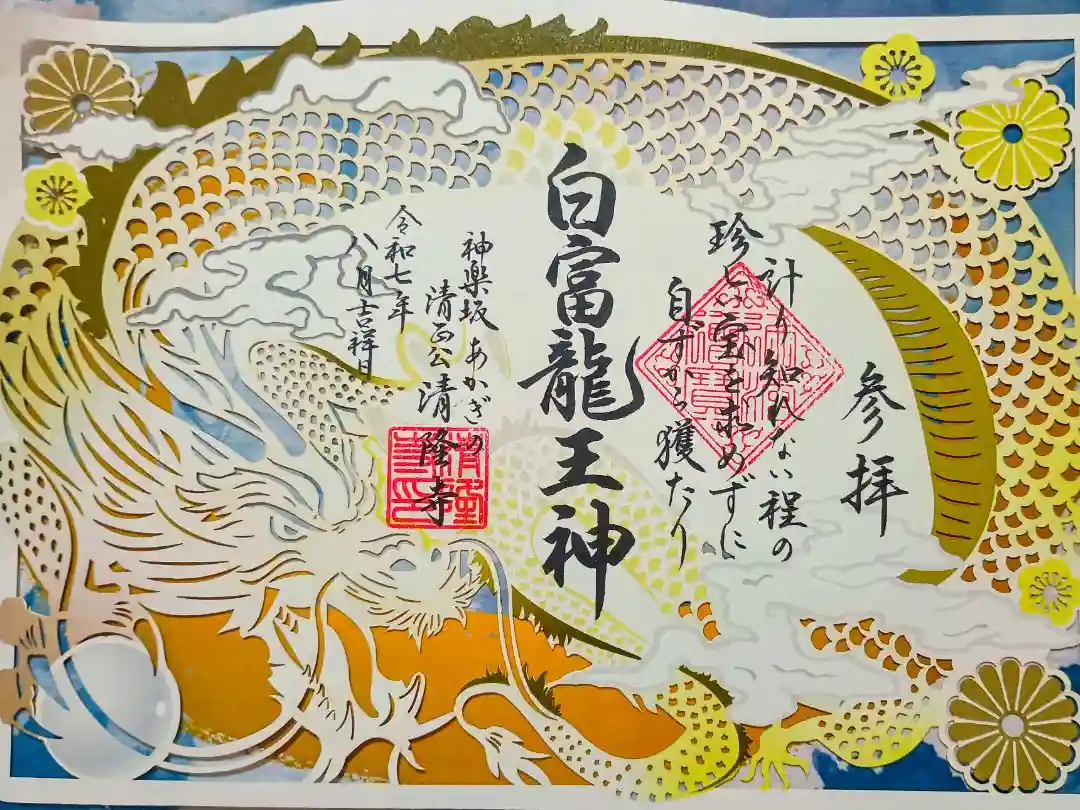 参拝
計り知れない程の
珍しい宝を求めずに
自ずから獲たり
白富龍王神
神楽坂 あかぎの
清正公 清隆寺
令和七年
八月吉祥日